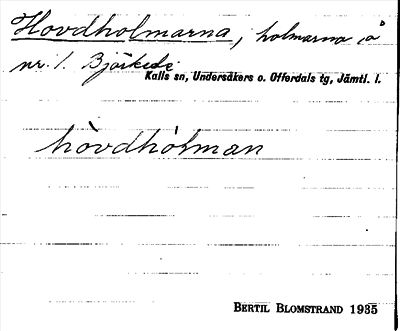 Hovdholmarna, holmarna, å
nr. 1. Björkede
Kalls sn, Undersåkers o. Offerdals tg, Jämtl. l.
hòvdhòlman
BERTIL BLOMSTRAND 1935